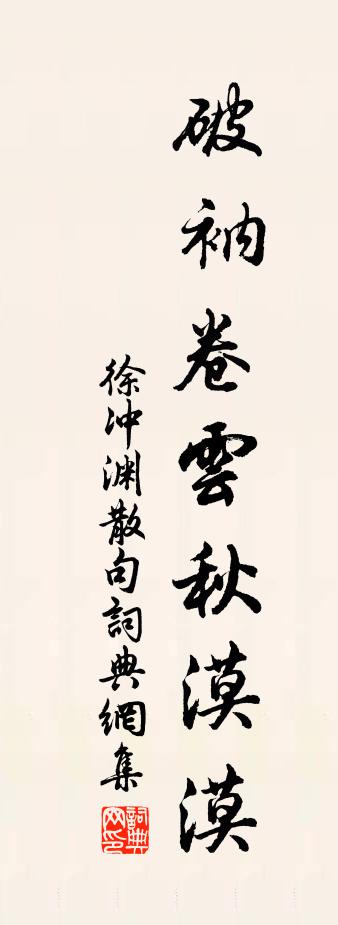 破衲卷雲秋漠漠
徐沖渊散句詞典網集
詞典
网印